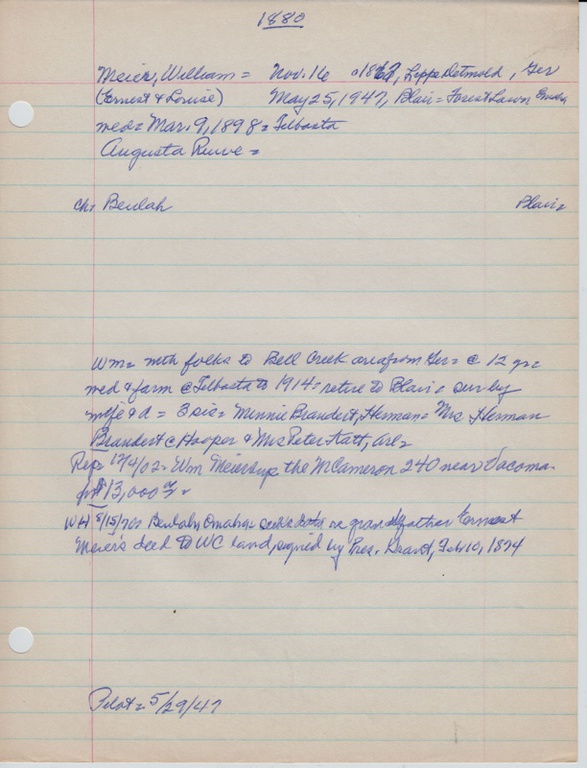 1880
Meier, William = Nov. 16 1862, Lippe Detmold, Ger
(Ernest & Louise) May 25, 1947, Blair = Forest Lawn Omaha
med = Mar. 9, 1898 = Telbasta
Augusta Ruwe =
ch: Beulah Blair
Wm = with folks to Bell Creek area from Ger = @ 12 yr =
med & farm @ Telbasta to 1914 = retire to Blair = sur by
wife & d = 3 sis = Minnie Brandert, Herman = Mrs Herman
Brandert @ Hooper & Mrs Peter Katt, Arl =
Rep = 12/4/02 = Wm Meier buys the McCameron 240 near Tacoma
for $13,000
WH 8/15/70: Beulah, Omaha = seeks data re grandfather Ernest
Meier's deed to WC land, signed by Pres. Grant, Feb 10, 1874
Pilot = 5/29/47